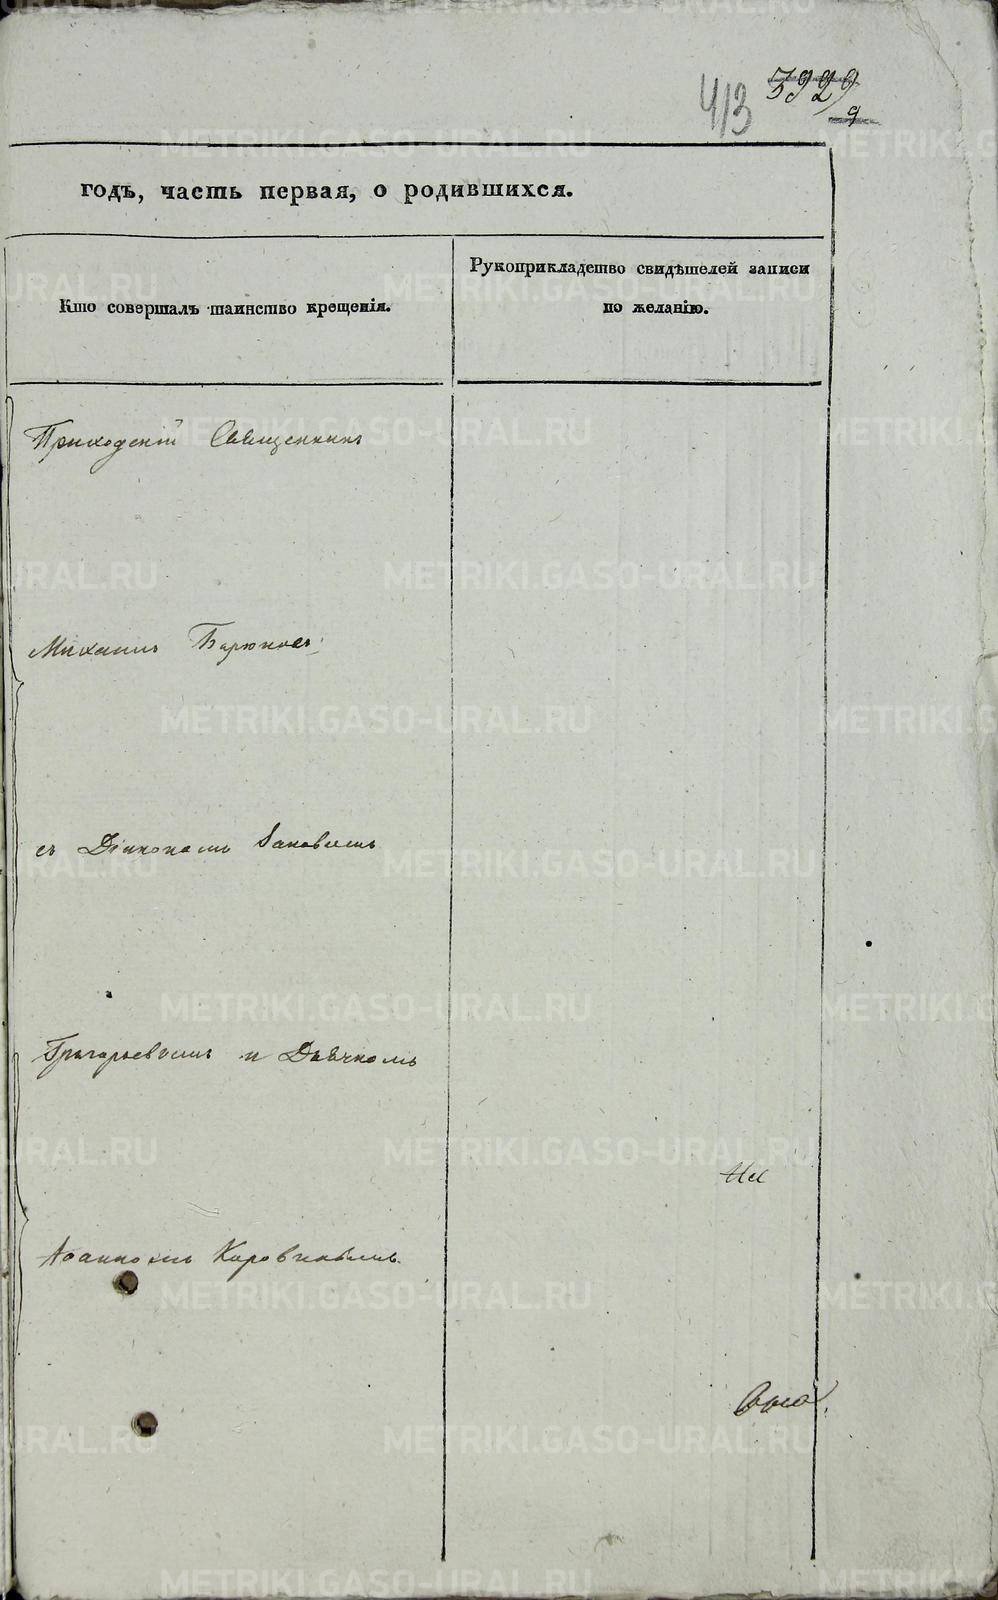 413 3929
9
годъ, часть первая, о родившихся.
Кто совершалъ таинство крещенія.
Рукоприкладство свидѣтелей записи
по желанію.
Приходскій Священникъ
Михаилъ Бирюковъ
съ Діакономъ Іаковомъ
Григорьевымъ и Дьячкомъ
Іоанномъ Коровинымъ.
METRIKI.GASO-URAL.RU